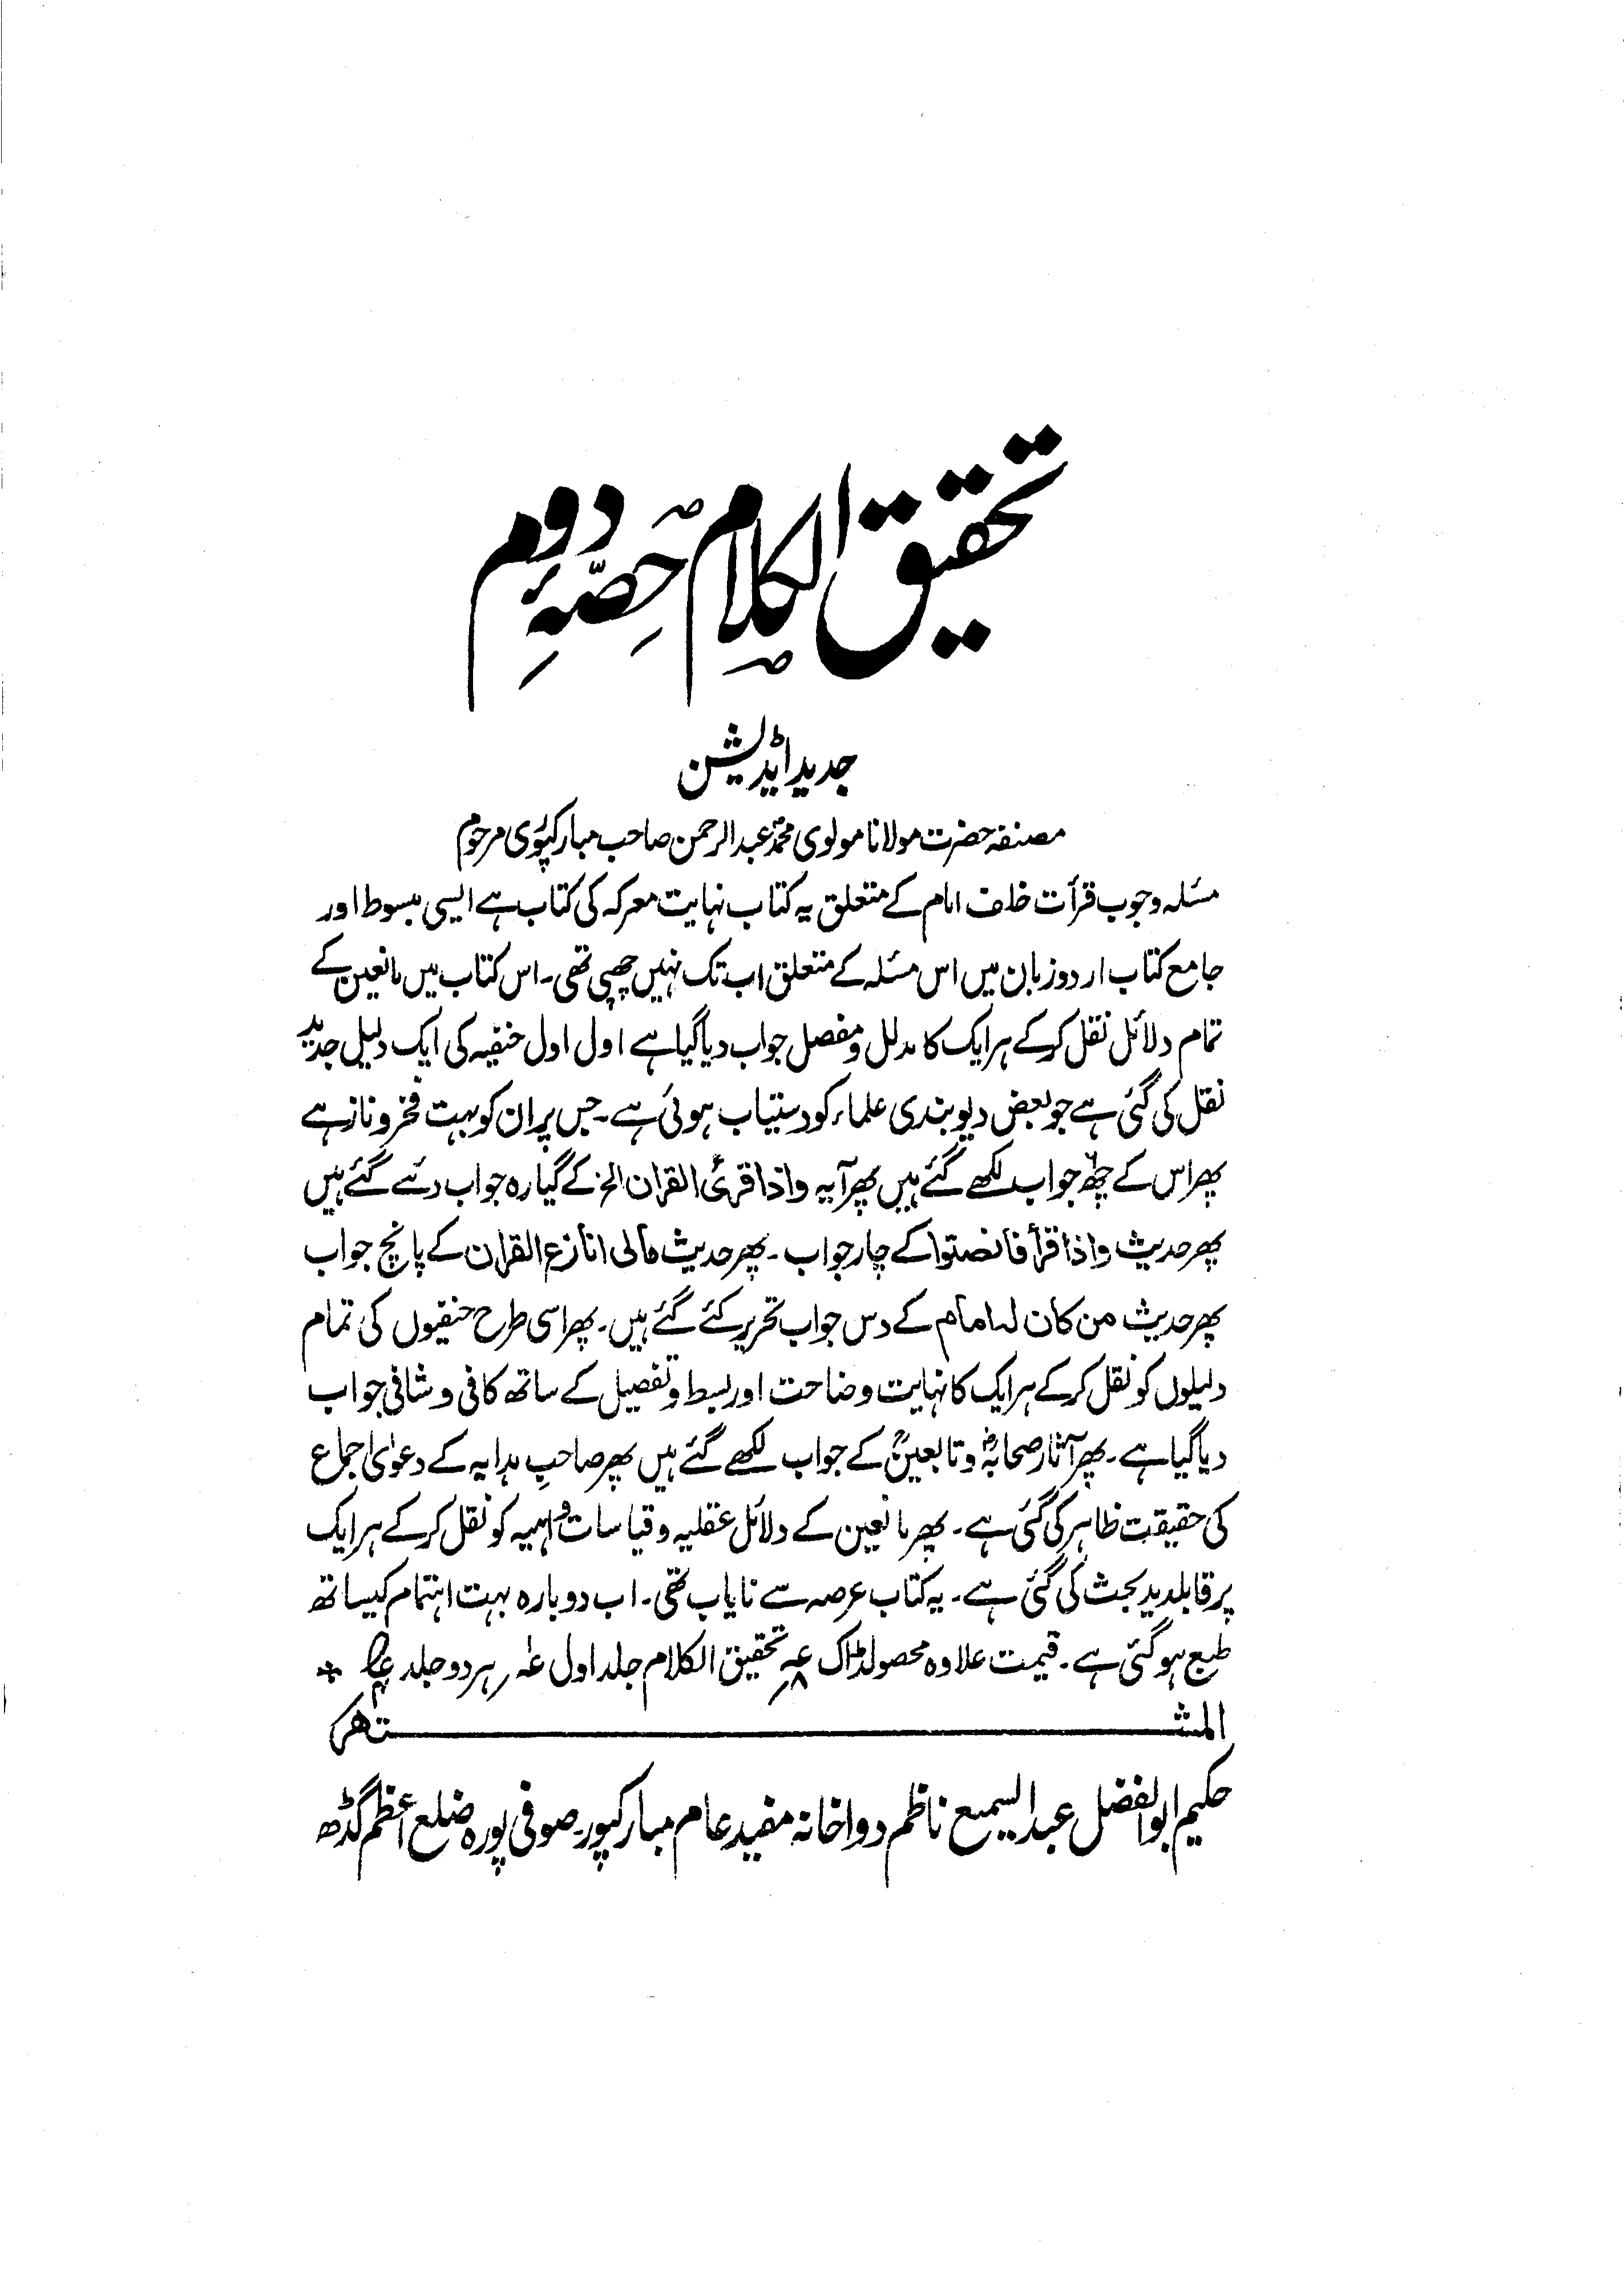 تحقیق الکلام حصّۂ دوم
جدید ایڈیشن
مصنفہ حضرت مولانا مولوی محمد عبدالرحمن صاحب مبارکپوری مرحوم
مسئلہ وجوب قرأت خلف امام کے متعلق یہ کتاب نہایت معرکہ کی کتاب ہے ایسی مبسوط اور
جامع کتاب اردو زبان میں اس مسئلہ کے متعلق اب تک نہیں چھپی تھی۔ اس کتاب میں مانعین کے
تمام دلائل نقل کرکے ہر ایک کا مدلل و مفصل جواب دیا گیا ہے اول اول حنفیہ کی ایک دلیل جدید
نقل کی گئی ہے جو بعض دیوبندی علماء کو دستیاب ہوئی ہے۔ جس پر ان کو بہت فخر و ناز ہے
پھر اس کے چھ جواب لکھے گئے ہیں پھر آیہ واذا قرئ القران الخ کے گیارہ جواب دئے گئے ہیں
پھر حدیث واذا قرأ فانصتوا کے چار جواب۔ پھر حدیث مالی انازع القران کے پانچ جواب
پھر حدیث من کان لہ امام کے دس جواب تحریر کئے گئے ہیں۔ پھر اسی طرح حنفیوں کی تمام
دلیلوں کو نقل کرکے ہر ایک کا نہایت وضاحت اور بسط و تفصیل کے ساتھ کافی و شافی جواب
دیا گیا ہے۔ پھر آثار صحابہؓ و تابعینؒ کے جواب لکھے گئے ہیں پھر صاحبِ ہدایہ کے دعویٰ اجماع
کی حقیقت ظاہر کی گئی ہے۔ پھر مانعین کے دلائل عقلیہ و قیاسات واہیہ کو نقل کرکے ہر ایک
پر قابلدید بحث کی گئی ہے۔ یہ کتاب عرصہ سے نایاب تھی۔ اب دوبارہ بہت اہتمام کیساتھ
طبع ہوگئی ہے۔ قیمت علاوہ محصولڈاک تحقیق الکلام جلد اول ہر دو جلد
المشتھر
حکیم ابوالفضل عبدالسمیع ناظم دواخانہ مفید عام مبارکپور۔ صوفی پورہ ضلع اعظم گڈھ